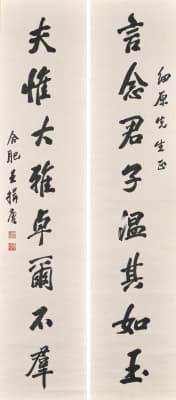 言念君子温其如玉
夫惟大雅卓爾不羣
先生正
合肥王揖唐